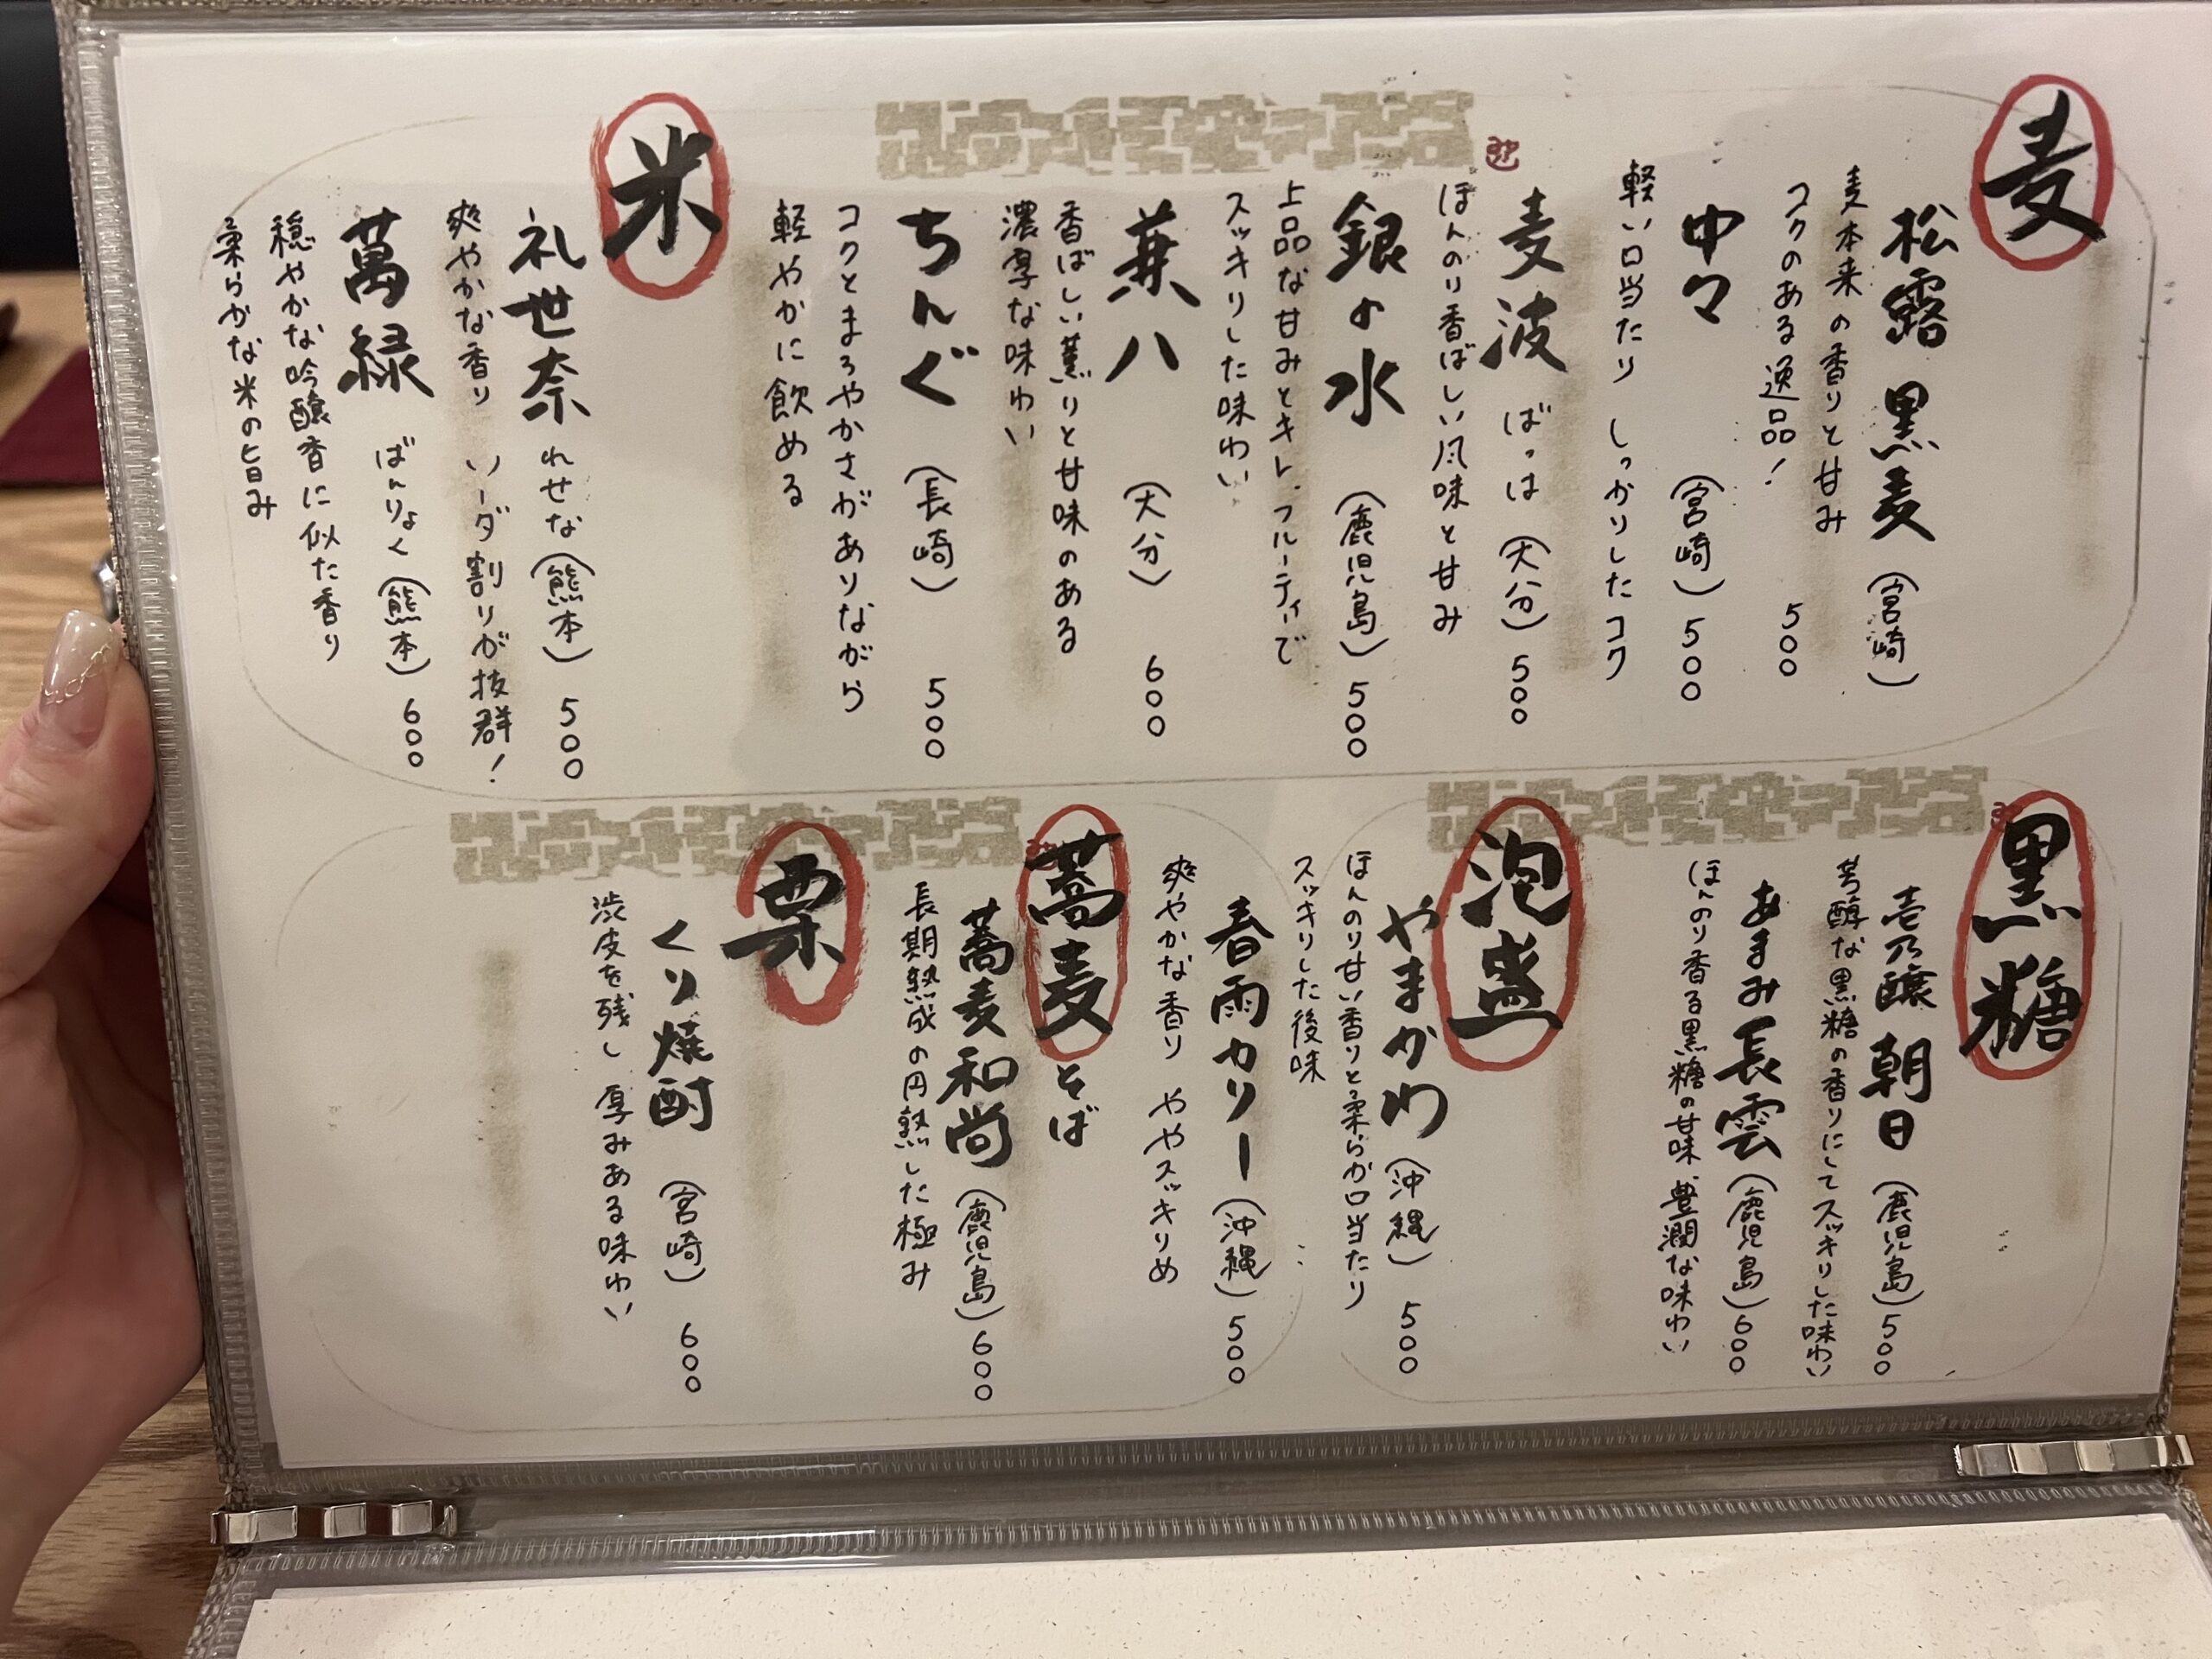 麦
松露 黒麦 (宮崎)
麦本来の香りと甘み
コクのある逸品! 500
中々 (宮崎) 500
軽い口当たり しっかりしたコク
麦波 ばっは (大分) 500
ほんのり香ばしい風味と甘み
銀の水 (鹿児島) 500
上品な甘みとキレ、フルーティで
スッキリした味わい
兼八 (大分) 600
香ばしい薫りと甘味のある
濃厚な味わい
ちんぐ (長崎) 500
コクとまろやかさがありながら
軽やかに飲める
米
礼世奈 れせな (熊本) 500
爽やかな香り ソーダ割りが抜群!
萬緑 ばんりょく (熊本) 600
穏やかな吟醸香に似た香り
柔らかな米の旨み
黒糖
壱乃醸 朝日 (鹿児島) 500
芳醇な黒糖の香りにしてスッキリした味わい
あまみ長雲 (鹿児島) 600
ほんのり香る黒糖の甘味 豊潤な味わい
泡盛
やまかわ (沖縄) 500
ほんのり甘い香りと柔らか口当たり
スッキリした後味
春雨カリー (沖縄) 500
爽やかな香り ややスッキリめ
蕎麦 そば
蕎麦和尚 (鹿児島) 600
長期熟成の円熟した極み
栗
くり焼酎 (宮崎) 600
渋皮を残し 厚みある味わい